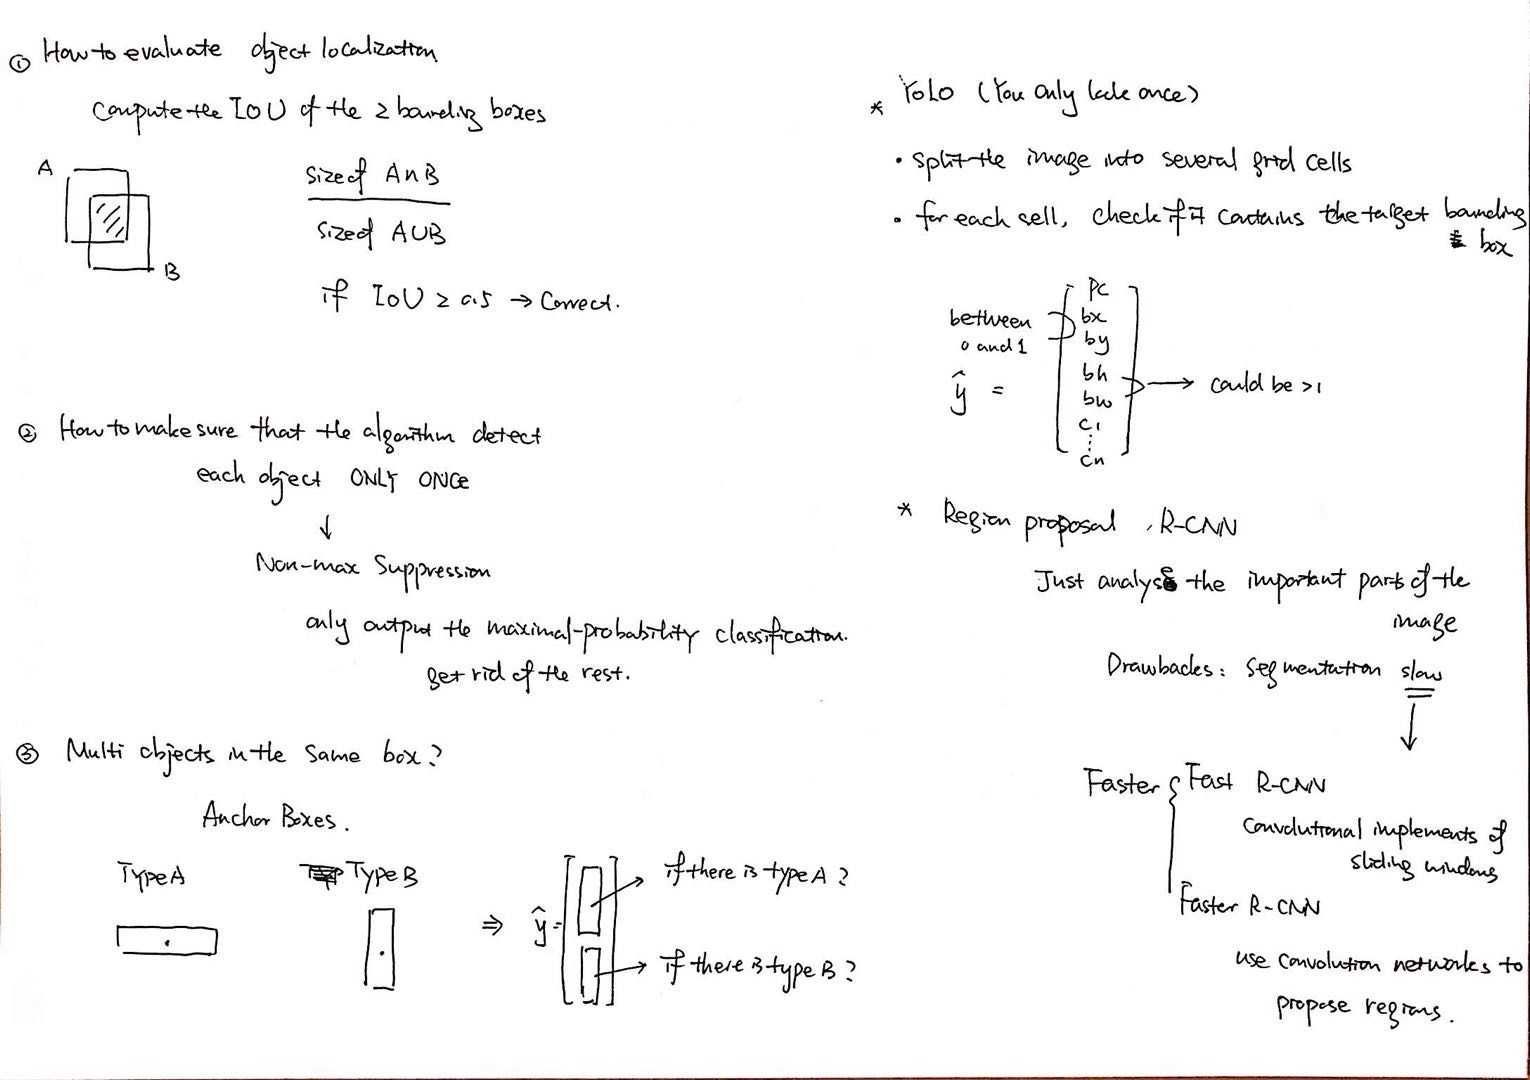 ① How to evaluate object localization
Compute the IoU of the 2 bounding boxes
A
B
size of A∩B
size of A∪B
if IoU ≥ 0.5 → Correct.
② How to make sure that the algorithm detect
each object ONLY ONCE
↓
Non-max Suppression
only output the maximal-probability classification.
get rid of the rest.
③ Multi objects in the same box?
Anchor Boxes.
Type A
Type B
⇒ ŷ =
→ if there is type A ?
→ if there is type B ?
* YOLO (You only look once)
• split the image into several grid cells
• for each sell, check if it contains the target bounding
box
between
0 and 1
ŷ =
Pc
bx
by
bh
bw
c1
⋮
cn
→ could be >1
* Region proposal, R-CNN
Just analyse the important parts of the
image
Drawbacks: segmentation slow
↓
Faster { Fast R-CNN
Convolutional implements of
sliding windows
Faster R-CNN
use convolution networks to
propose regions.